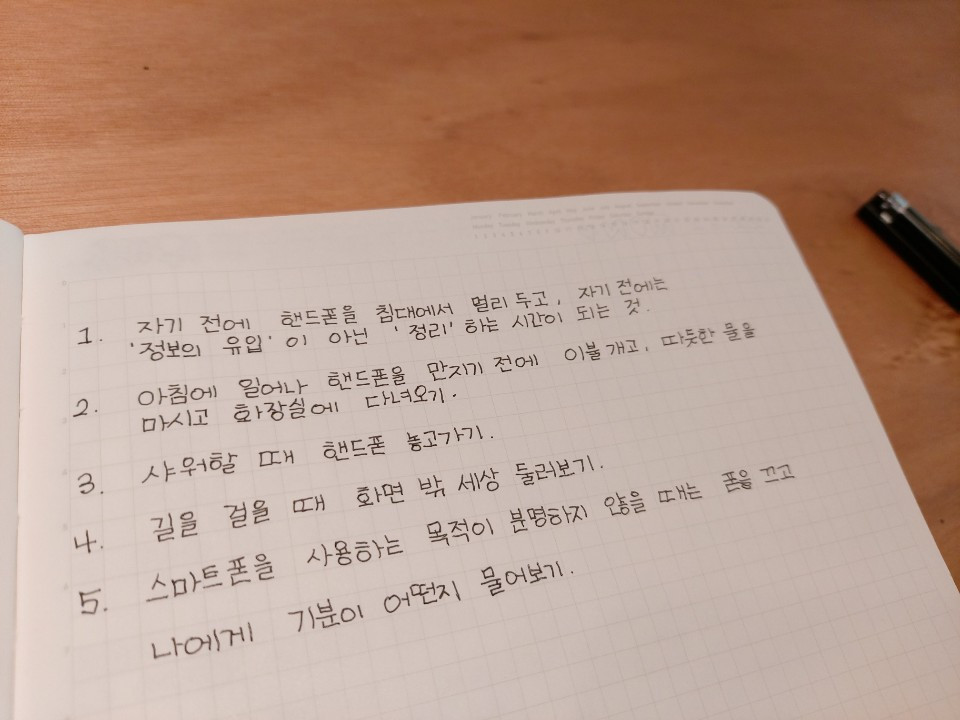 1. 자기 전에 핸드폰을 침대에서 멀리 두고, 자기 전에는
'정보의 유입'이 아닌 '정리'하는 시간이 되는 것.
2. 아침에 일어나 핸드폰을 만지기 전에 이불 개고, 따듯한 물을
마시고 화장실에 다녀오기.
3. 샤워할 때 핸드폰 놓고가기.
4. 길을 걸을 때 화면 밖 세상 둘러보기.
5. 스마트폰을 사용하는 목적이 분명하지 않을 때는 폰을 끄고
나에게 기분이 어떤지 물어보기.